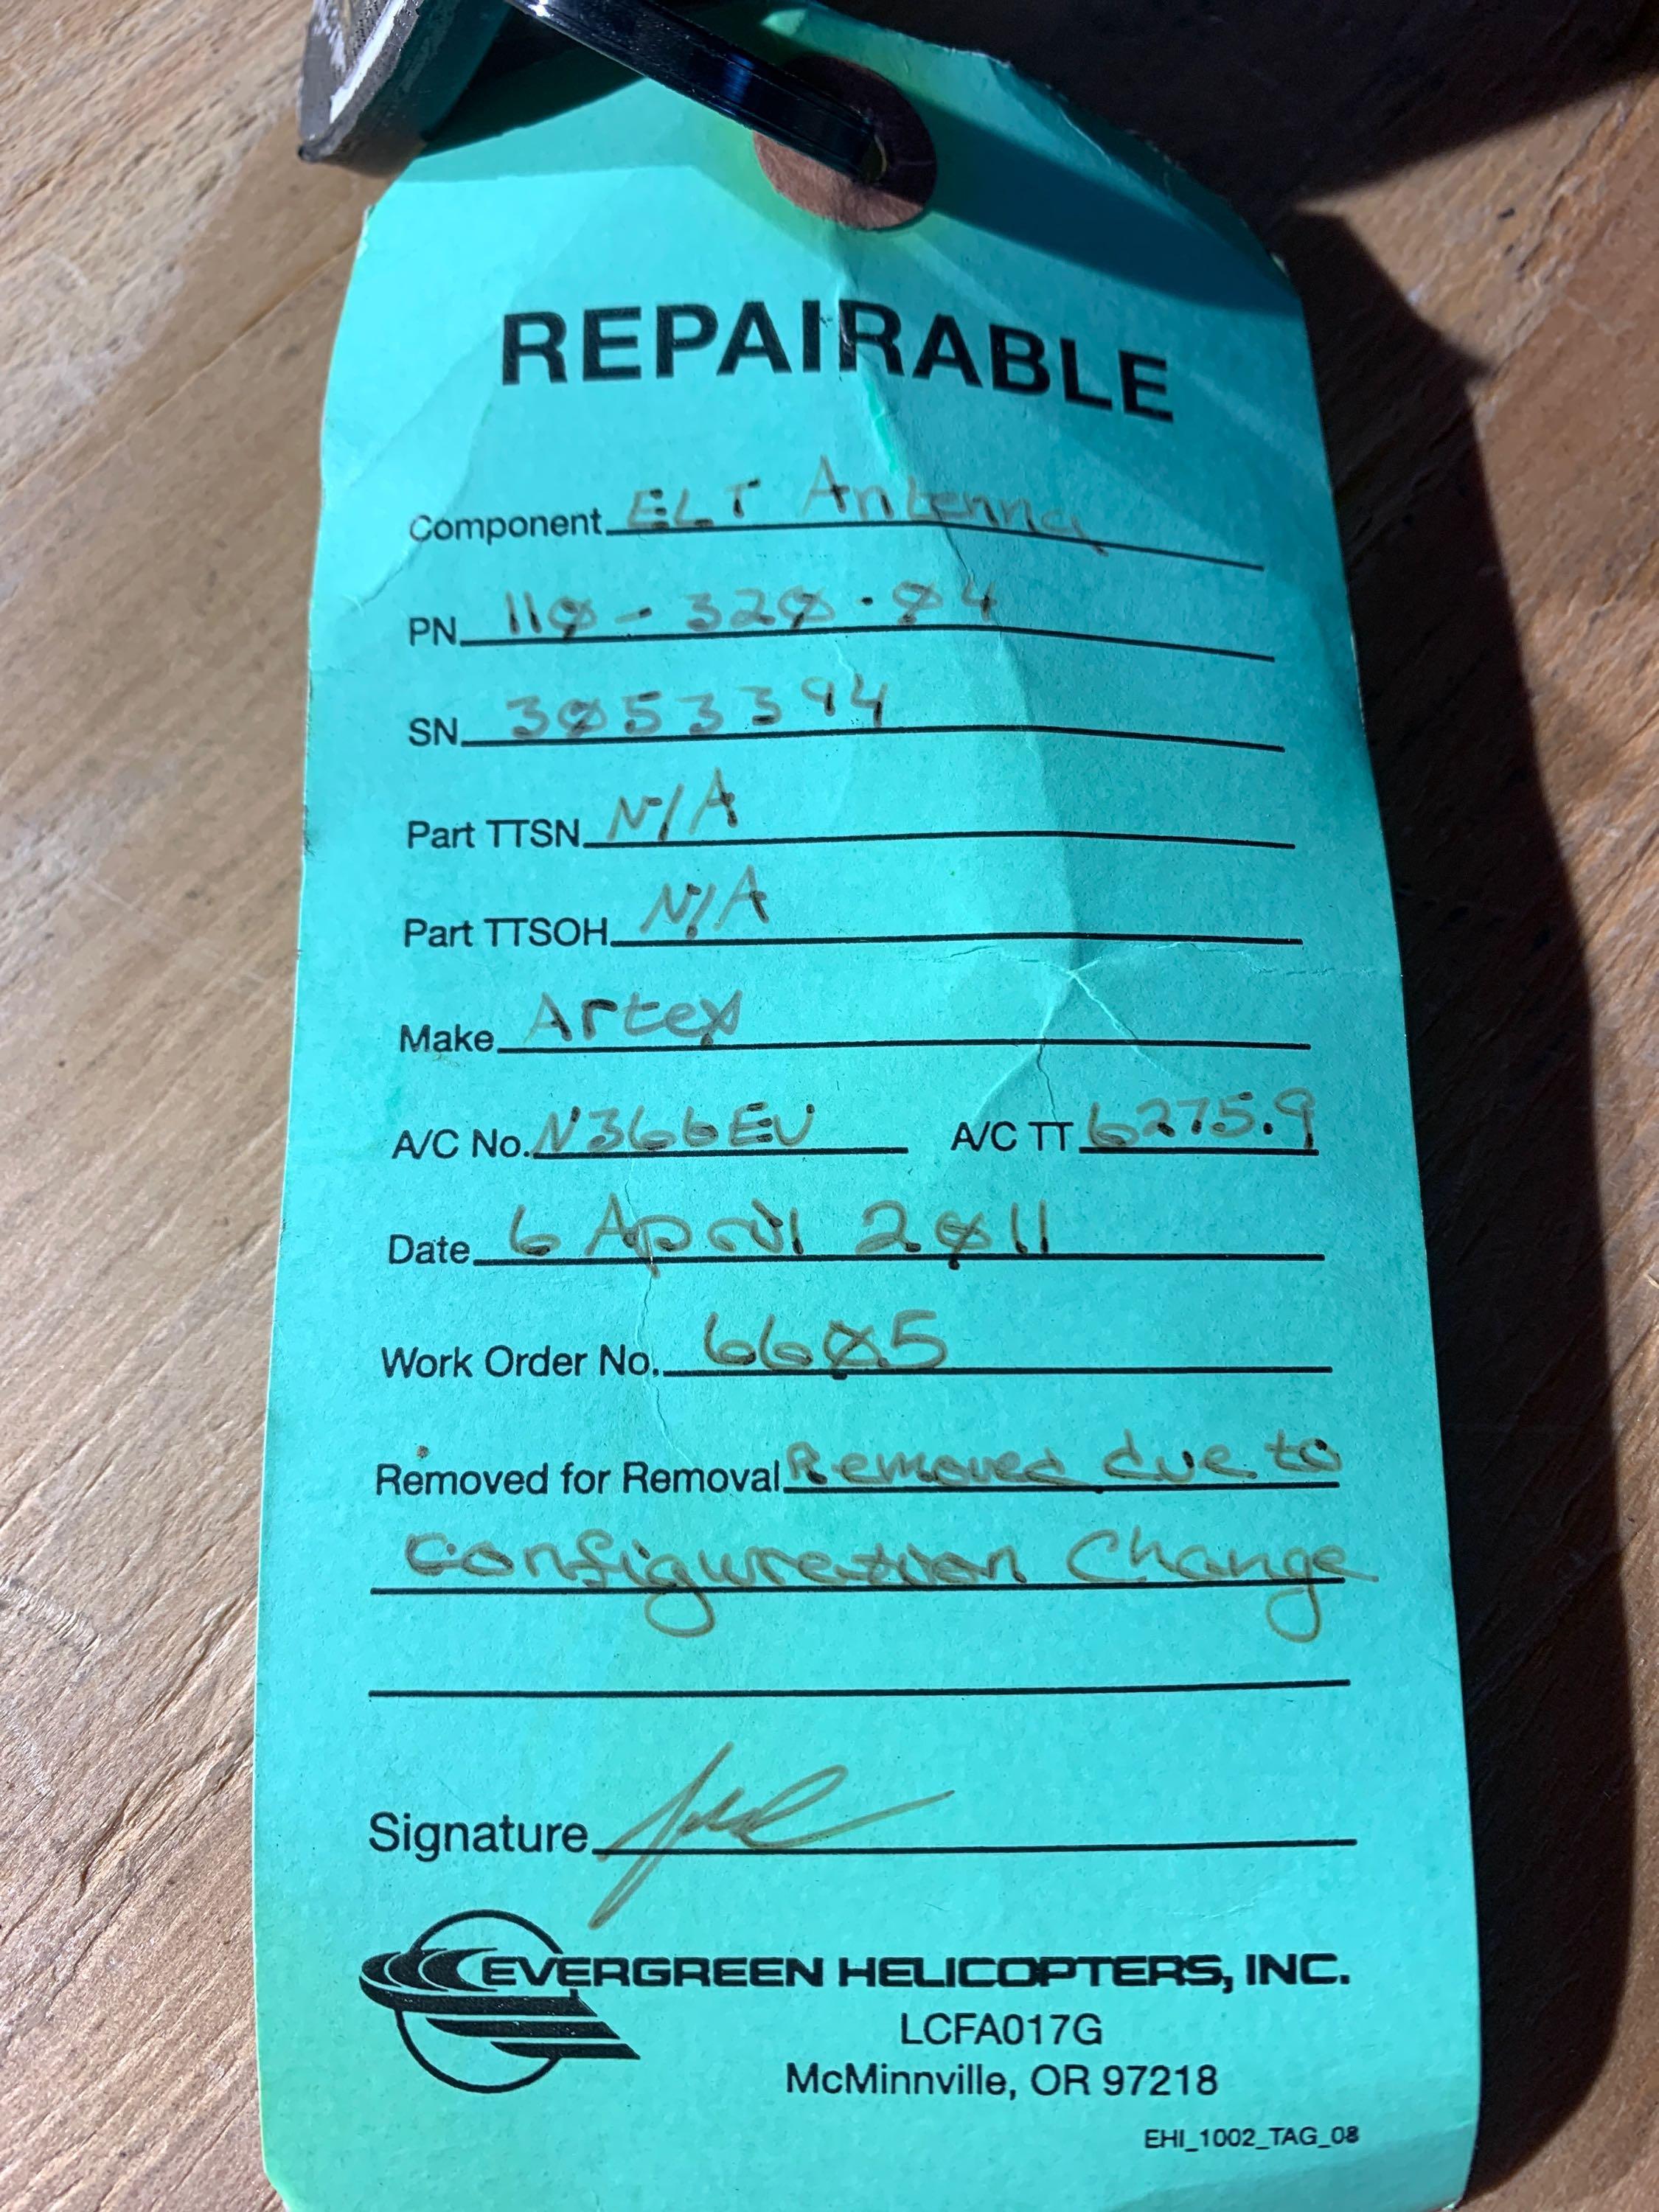 REPAIRABLE
Component ELT Antenna
PN 110-320-04
SN 3053394
Part TTSN N/A
Part TTSOH N/A
Make Artex
A/C No. N366EV A/C TT 6275.9
Date 6 April 2011
Work Order No. 6605
Removed for Removal Removed due to
Configuration Change
Signature
EVERGREEN HELICOPTERS, INC.
LCFA017G
McMinnville, OR 97218
EHI_1002_TAG_08